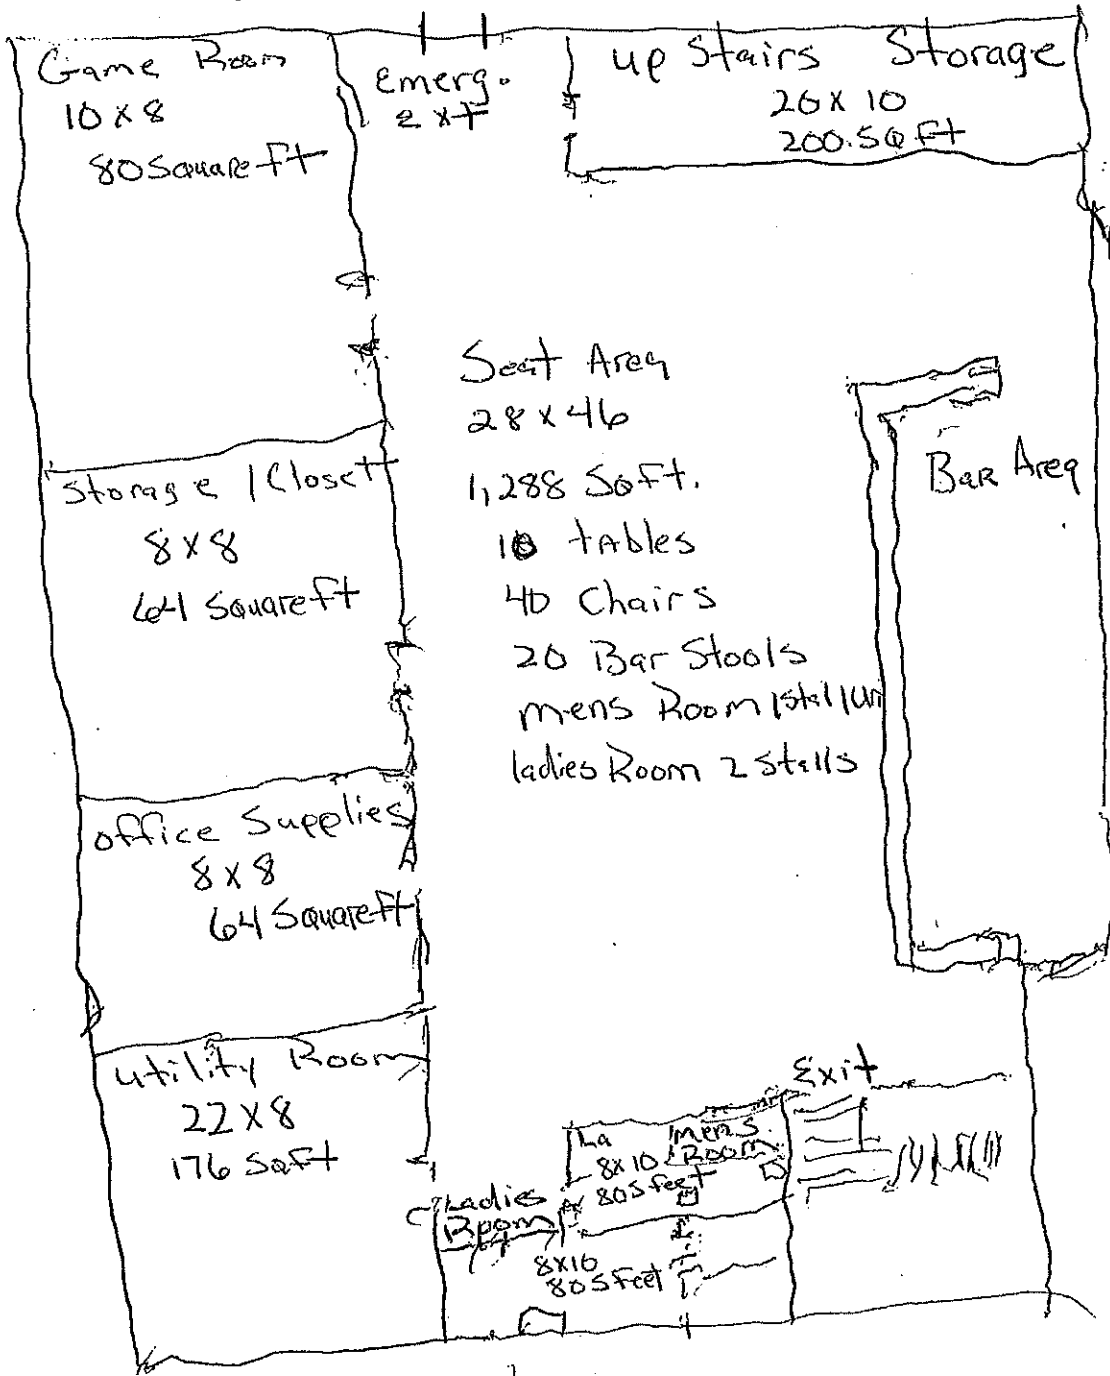 Game Room
10 x 8
80 Square ft
Emerg.
up Stairs Storage
20 x 10
200.SQ Ft
Seat Area
28 x 46
1,288 SqFt.
10 tables
40 Chairs
20 Bar Stools
mens Room 1stall/Uri
ladies Room 2 stalls
Bar Area
Storage / Closett
8 x 8
64 Square ft
office Supplies
8 x 8
64 Square ft
utility Room
22 x 8
176 Sqft
Exit
La
mens
Room
8x10
80 S feet
Ladies
Room
8x10
80 S feet